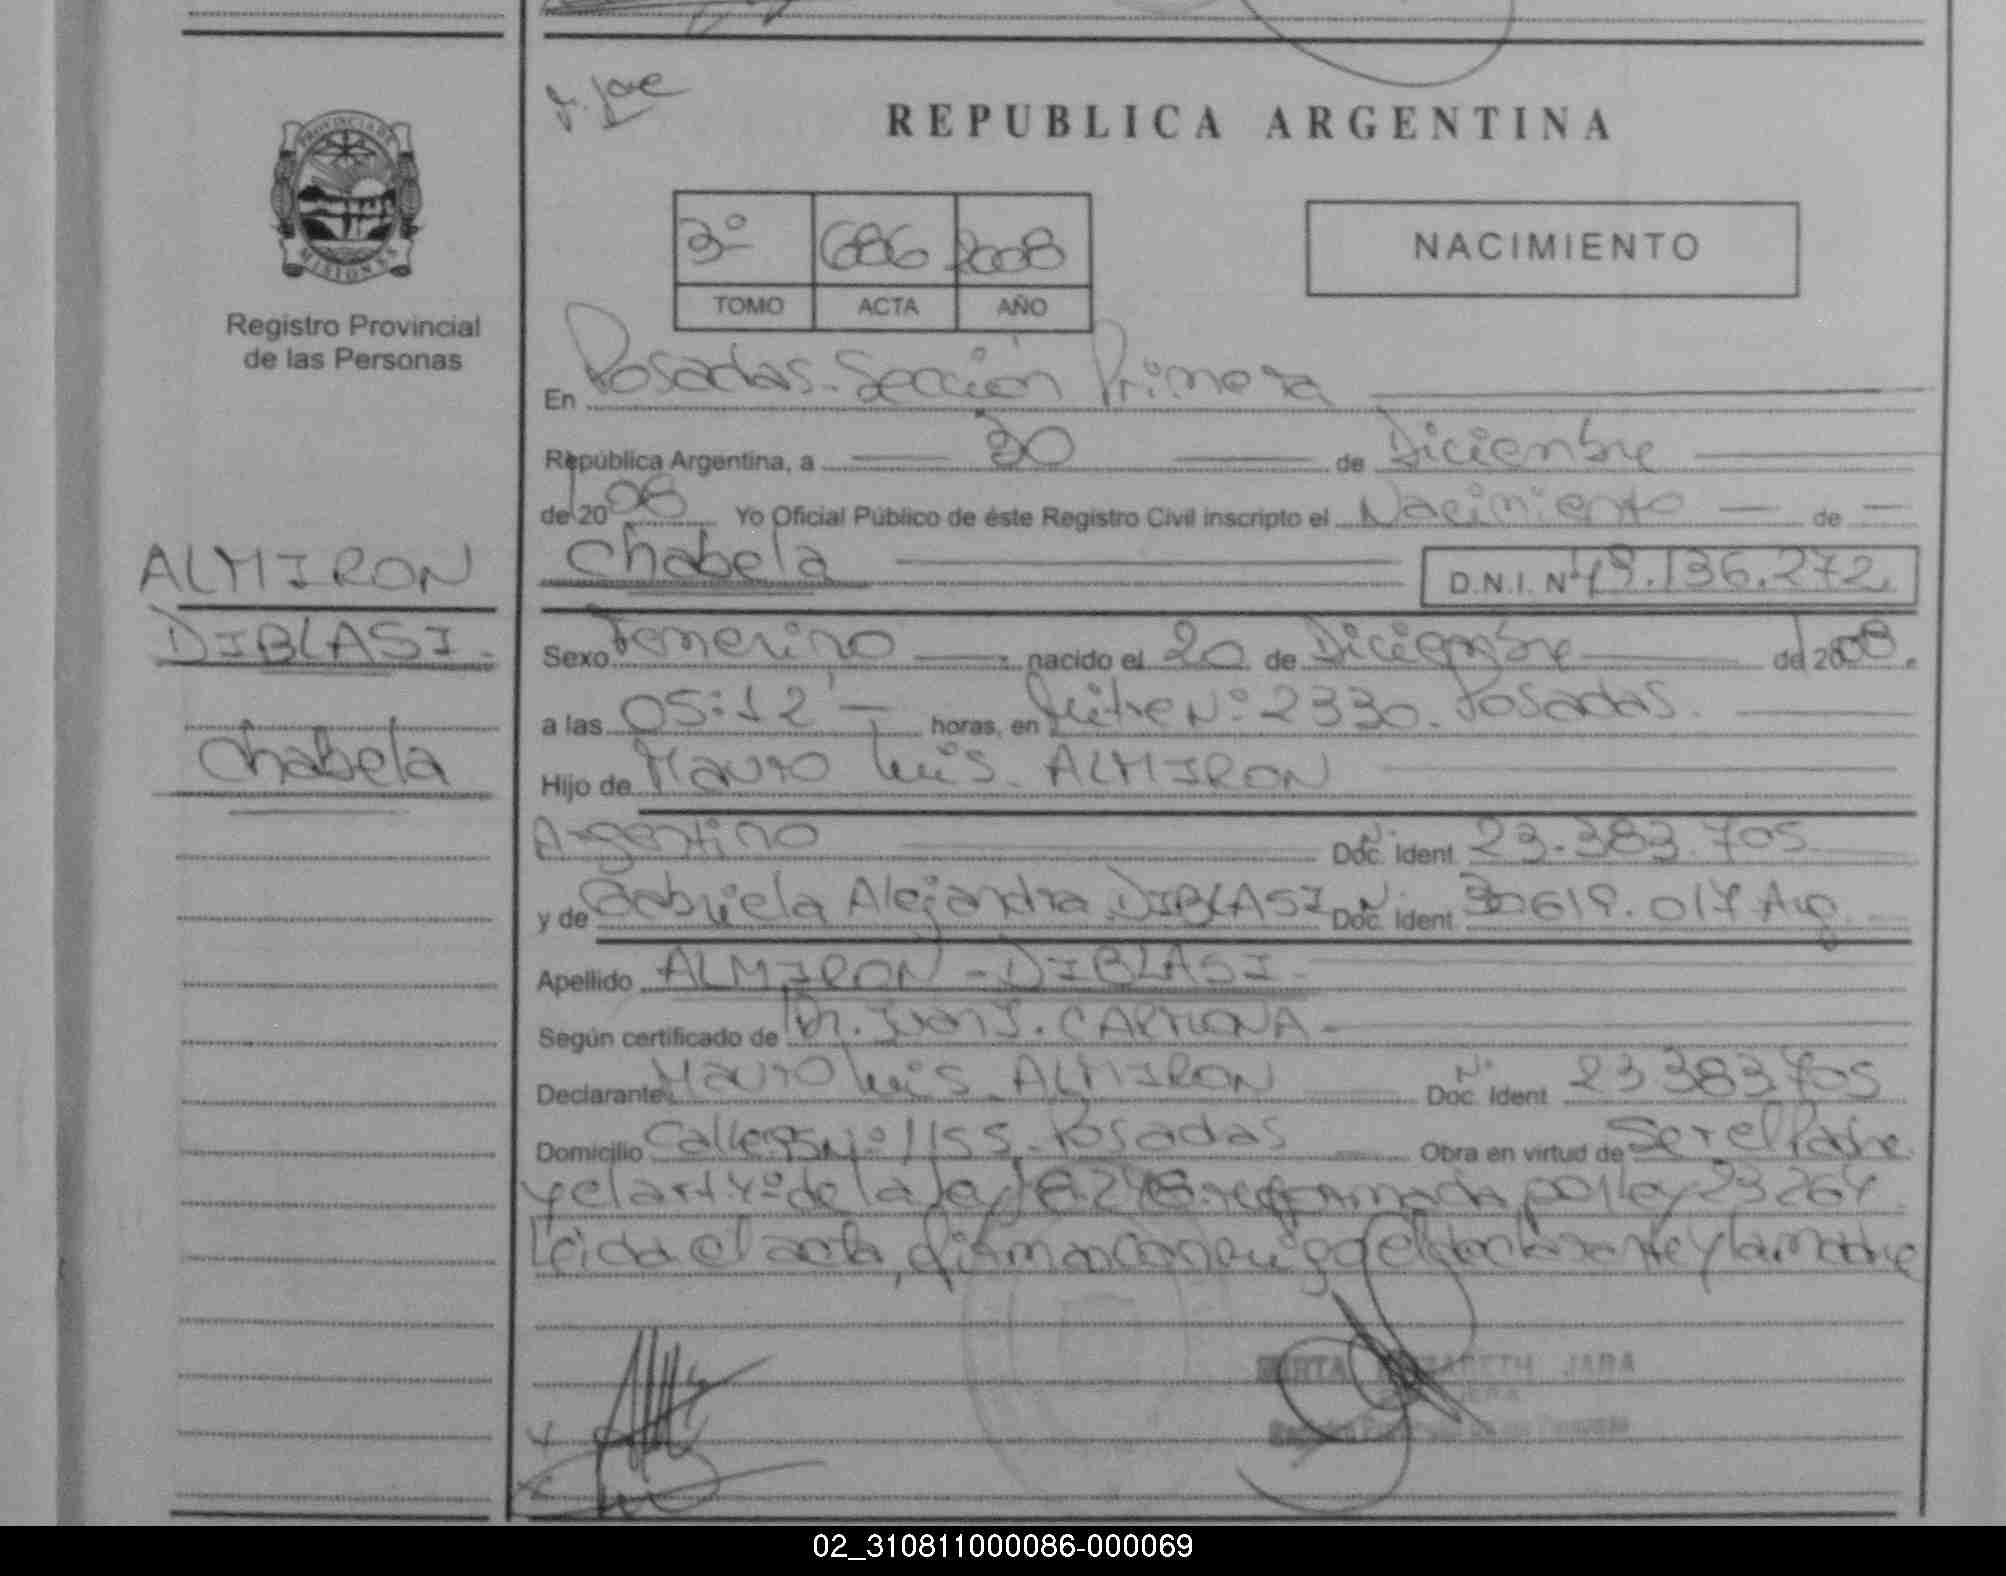 REPUBLICA ARGENTINA
PROVINCIA DE
MISIONES
Registro Provincial
de las Personas
3º 686 2008
TOMO ACTA AÑO
NACIMIENTO
En Posadas. Sección Primera
República Argentina, a 30 de Diciembre
de 2008 Yo Oficial Público de éste Registro Civil inscripto el Nacimiento de
Chabela D.N.I. Nº 49.136.272
ALMIRON
DIBLASI
Chabela
Sexo Femenino nacido el 20 de Diciembre de 2008.
a las 05:12 horas, en Mitre Nº 2330. Posadas.
Hijo de Mauro Luis ALMIRON
Argentino Doc. Ident Nº 23.383.705
y de Gabriela Alejandra DIBLASI Doc. Ident Nº 30619.017 Arg.
Apellido ALMIRON - DIBLASI
Según certificado de Dr. Juan J. CARMONA
Declarante Mauro Luis ALMIRON Doc. Ident Nº 23383705
Domicilio Calle Nº 1155. Posadas Obra en virtud de Ser el Padre
y el art. 4º de la ley 18.248 reformada por ley 23264
Leida el acta, firman conmigo el declarante y la madre
ELIZABETH JARA
02_310811000086-000069